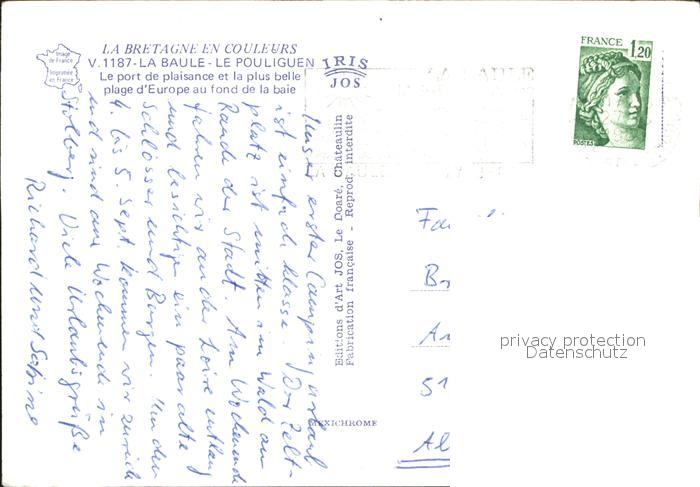 LA BRETAGNE EN COULEURS
V. 1187 - LA BAULE - LE POULIGUEN
Le port de plaisance et la plus belle
plage d'Europe au fond de la baie
Image de France
Imprimée en France
IRIS
JOS
LA BAULE
FRANCE
1,20
POSTES
Unser erster Campingurlaub
ist einfach klasse. Der Zelt-
platz ist mitten im Wald am
Rande der Stadt. Am Wochenende
fahren wir an der Loire entlang
und besichtigen ein paar alte
Schlösser und Burgen. Um den
4. bis 5. Sept. kommen wir zurück
und sind am Wochenende in
Stolberg. Viele Urlaubsgrüße
Richard und Sabine
Editions d'Art JOS, Le Doaré, Châteaulin
Fabrication française - Reprod. interdite
MEXICHROME
Fa
Br
An
51
Al
privacy protection
Datenschutz